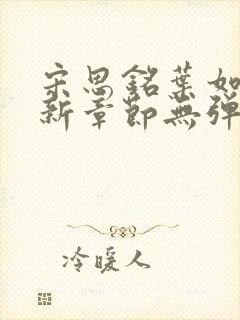 宋思銘葉如
新章節無彈
冷暖人